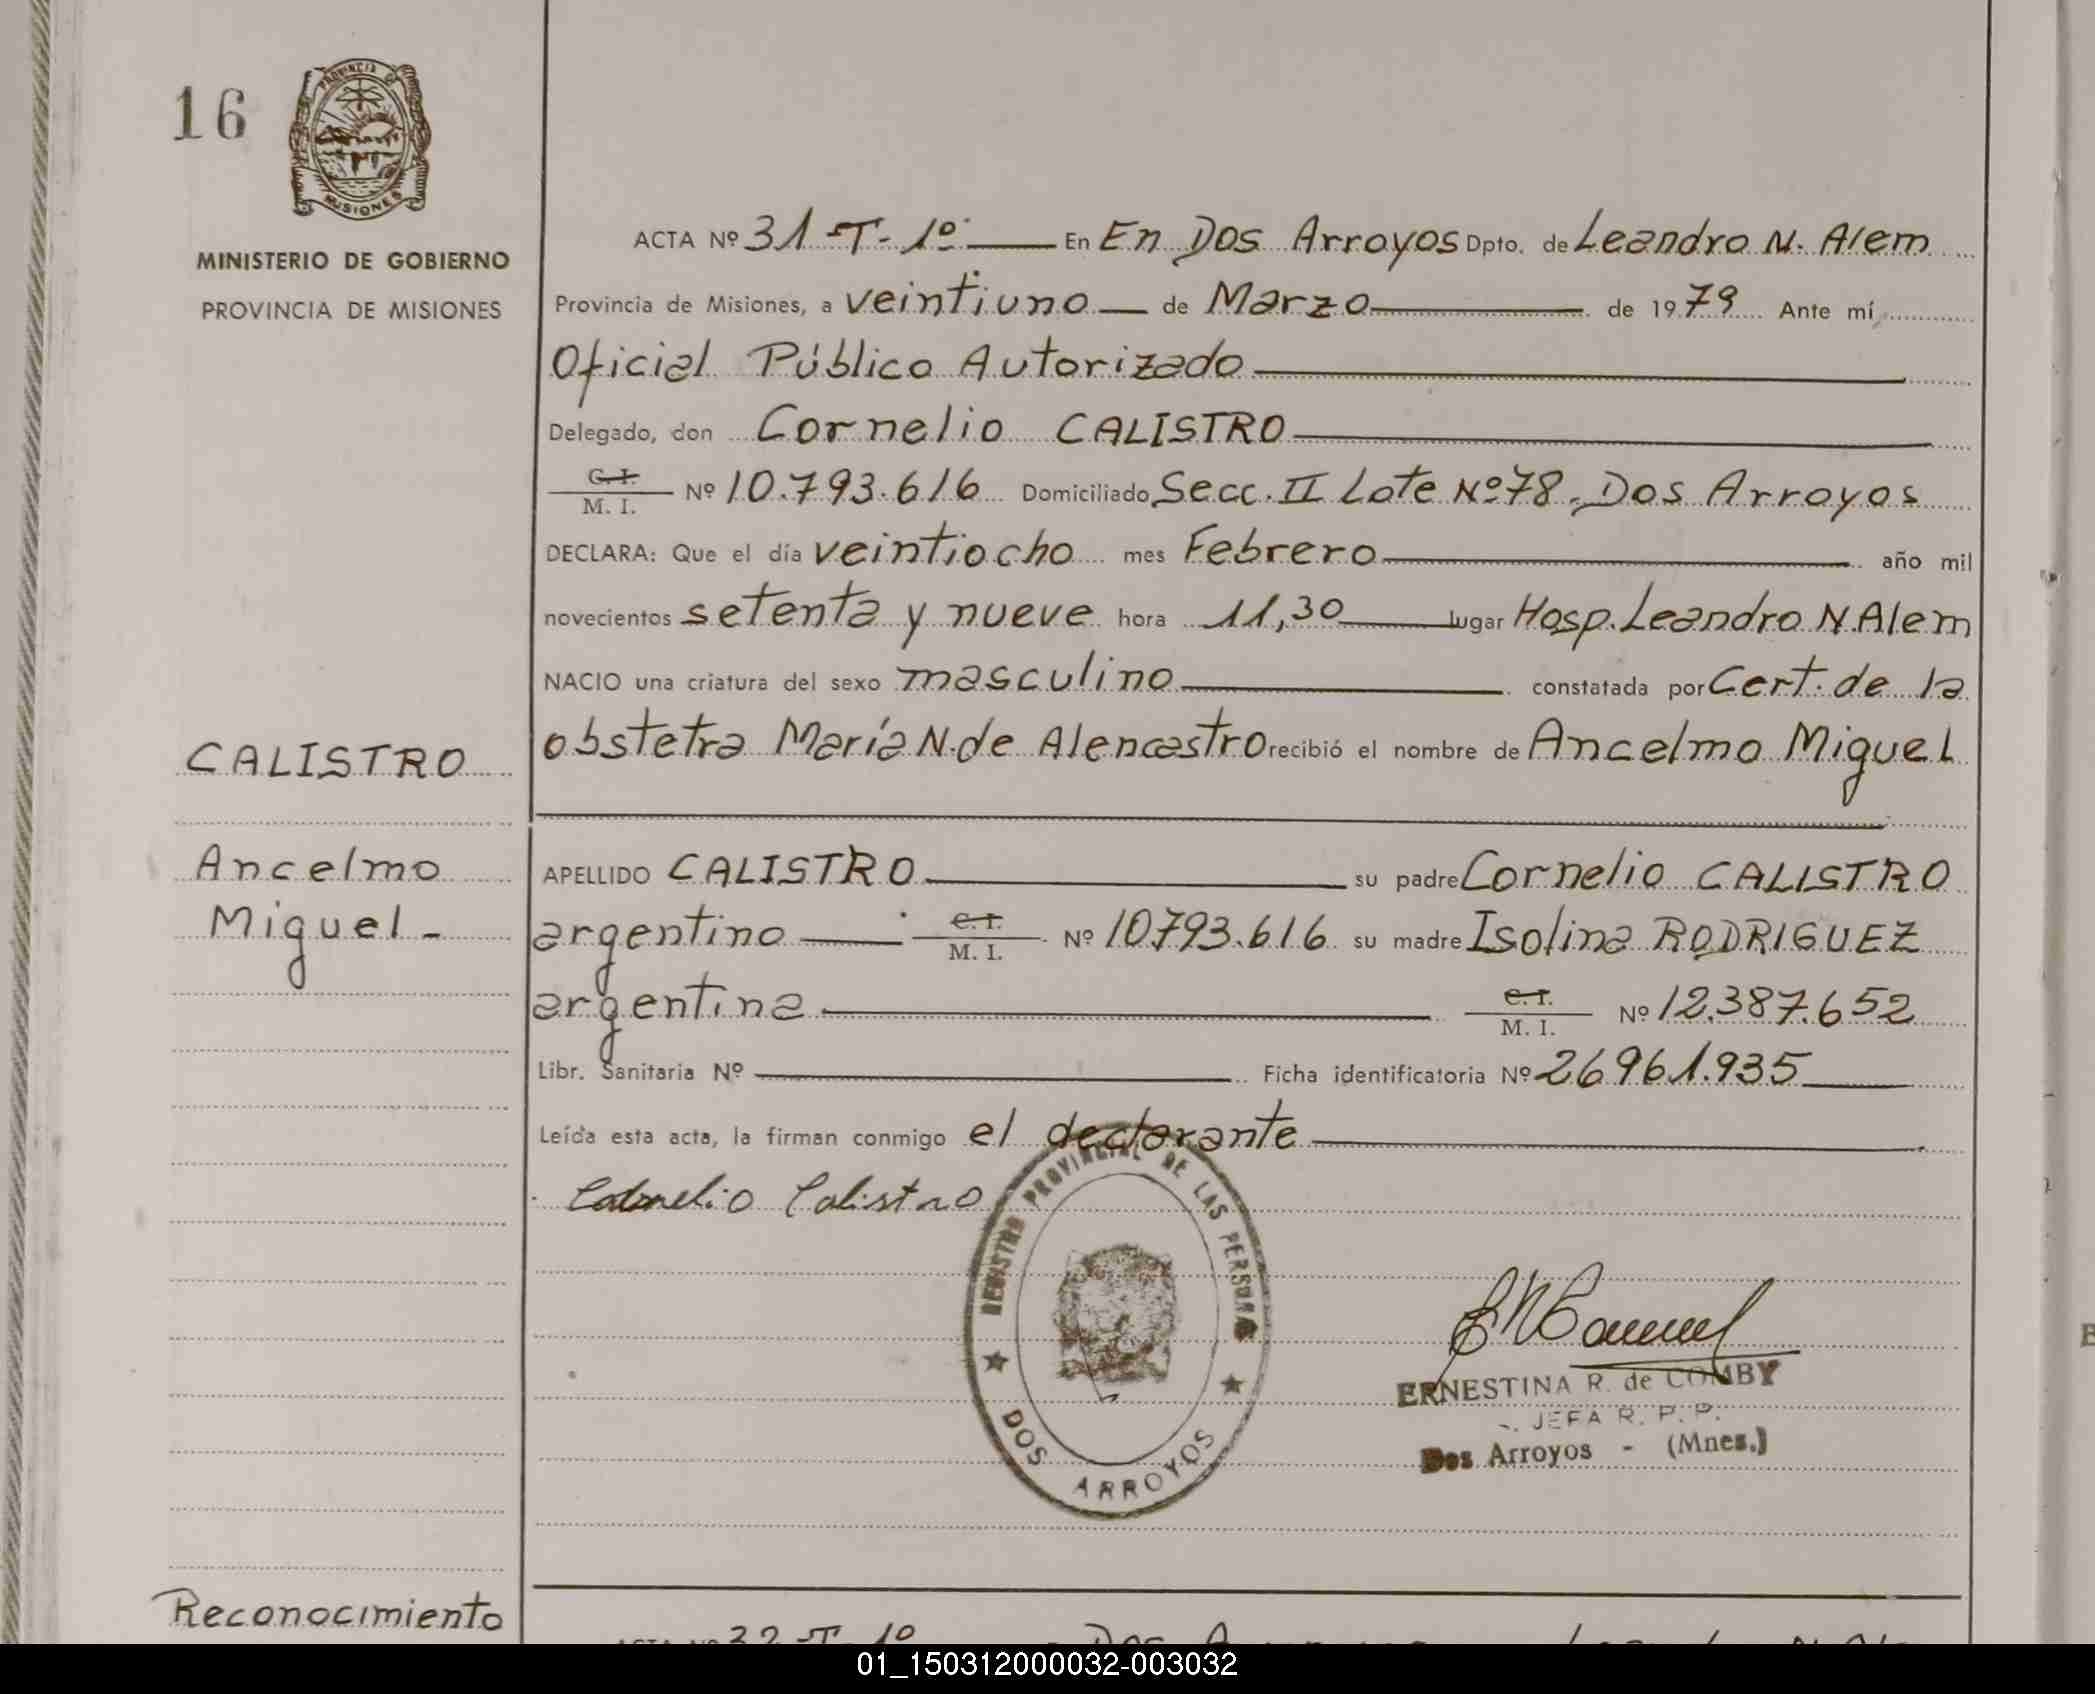 16
PROVINCIA DE
MISIONES
MINISTERIO DE GOBIERNO
PROVINCIA DE MISIONES
ACTA Nº 31-T-1º En En Dos Arroyos Dpto. de Leandro N. Alem
Provincia de Misiones, a veintiuno de Marzo de 1979 Ante mí
Oficial Público Autorizado
Delegado, don Cornelio CALISTRO
C. I.
M. I. Nº 10.793.616 Domiciliado Secc. II Lote Nº 78. Dos Arroyos
DECLARA: Que el día veintiocho mes Febrero año mil
novecientos setenta y nueve hora 11,30 lugar Hosp. Leandro N Alem
NACIO una criatura del sexo masculino constatada por Cert. de la
obstetra María N. de Alencastro recibió el nombre de Ancelmo Miguel
CALISTRO
Ancelmo
Miguel -
APELLIDO CALISTRO su padre Cornelio CALISTRO
argentino C. I. M. I. Nº 10793.616 su madre Isolina RODRIGUEZ
argentina C. I. M. I. Nº 12.387.652
Libr. Sanitaria Nº Ficha identificatoria Nº 26961.935
Leída esta acta, la firman conmigo el declarante
Cornelio Calistro
REGISTRO PROVINCIAL DE LAS PERSONAS
DOS ARROYOS
ERNESTINA R. de COMBY
JEFA R. P. P.
Dos Arroyos - (Mnes.)
Reconocimiento
ACTA Nº 32-T-1º
01_150312000032-003032